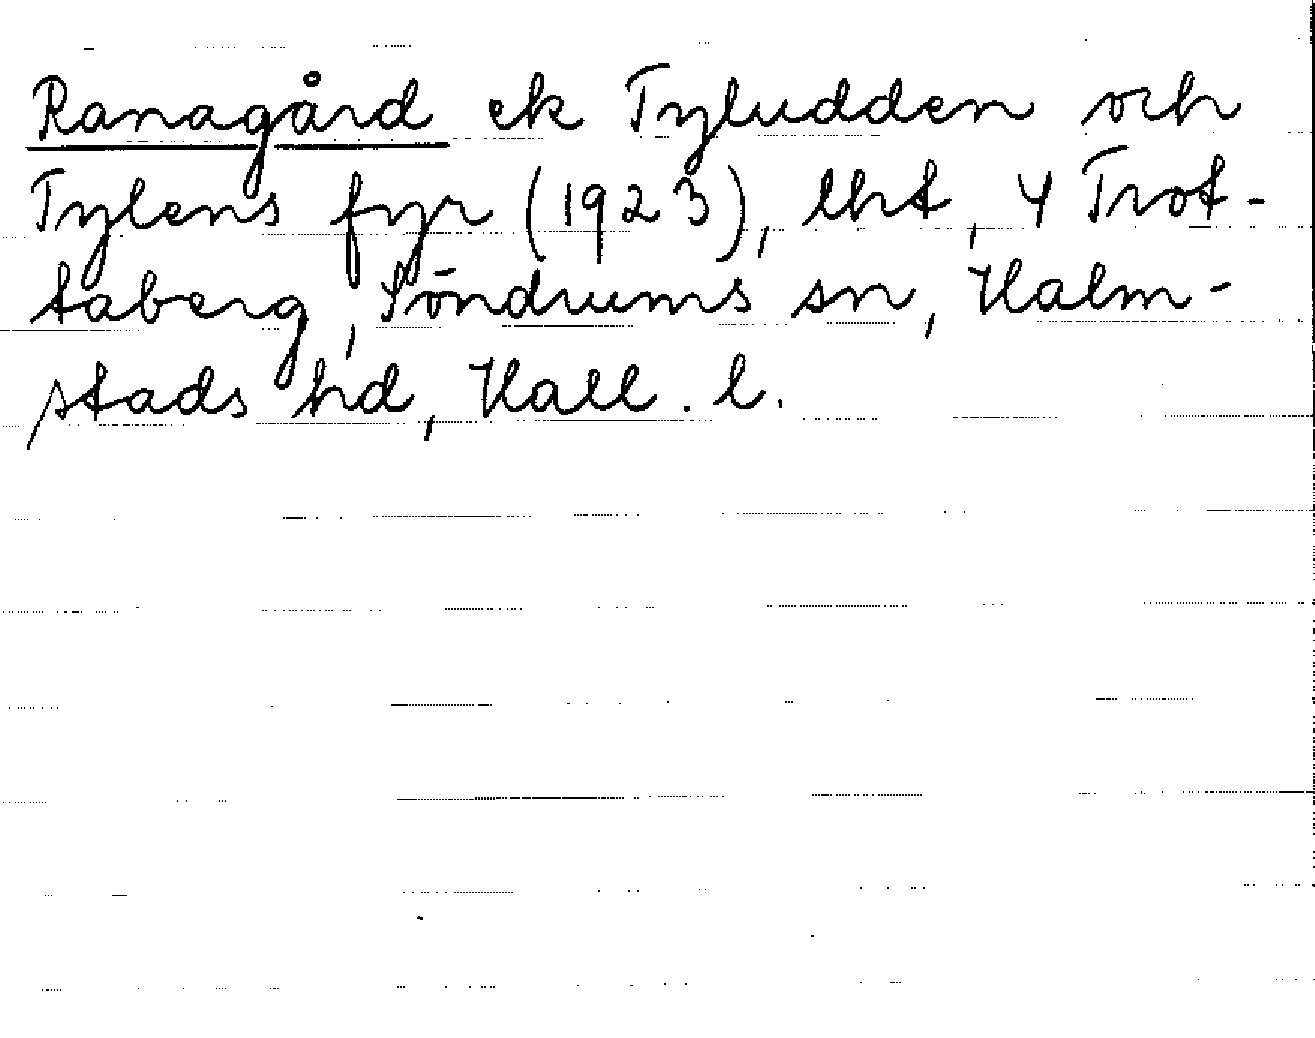 Ranagård ek Tyludden och
Tylens fyr (1923), lht, 4 Trot-
taberg, Söndrums sn, Halm-
stads hd, Hall. l.